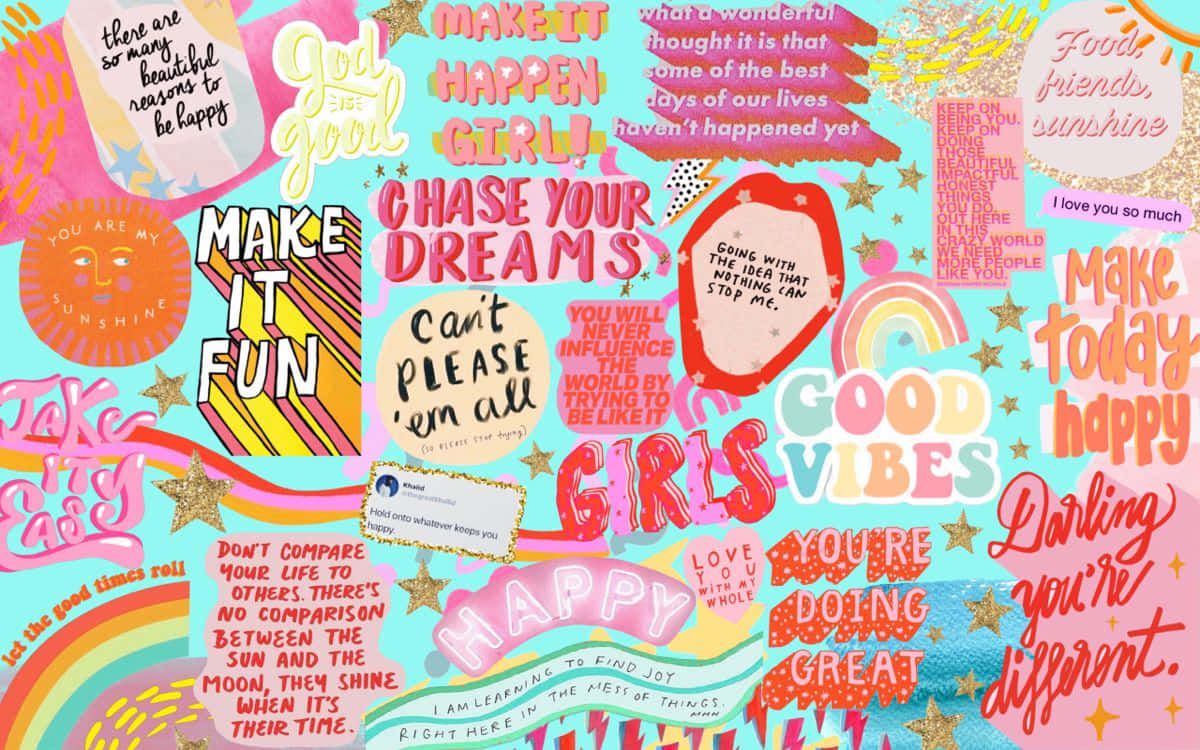 there are
so many
beautiful
reasons to
be happy
god
IS
good
MAKE IT
HAPPEN
GIRL!
what a wonderful
thought it is that
some of the best
days of our lives
haven't happened yet
Food,
friends,
sunshine
KEEP ON
BEING YOU.
KEEP ON
DOING
THOSE
BEAUTIFUL
IMPACTFUL
HONEST
THINGS
YOU DO.
OUT HERE
IN THIS
CRAZY WORLD
WE NEED
MORE PEOPLE
LIKE YOU.
I love you so much
YOU ARE MY
SUNSHINE
MAKE
IT
FUN
CHASE YOUR
DREAMS
GOING WITH
THE IDEA THAT
NOTHING CAN
STOP ME.
Make
today
happy
can't
PLEASE
'em all
(SO PLEASE STOP trying)
YOU WILL
NEVER
INFLUENCE
THE
WORLD BY
TRYING TO
BE LIKE IT
GOOD
VIBES
TAKE
IT
EASY
GIRLS
Khalid
@thegreatkhalid
Hold onto whatever keeps you
happy.
Darling
you're
different.
let the good times roll
DON'T COMPARE
YOUR LIFE TO
OTHERS. THERE'S
NO COMPARISON
BETWEEN THE
SUN AND THE
MOON, THEY SHINE
WHEN IT'S
THEIR TIME.
HAPPY
LOVE
YOU
WITH MY
WHOLE
YOU'RE
DOING
GREAT
I AM LEARNING TO FIND JOY
RIGHT HERE IN THE MESS OF THINGS.
MHN